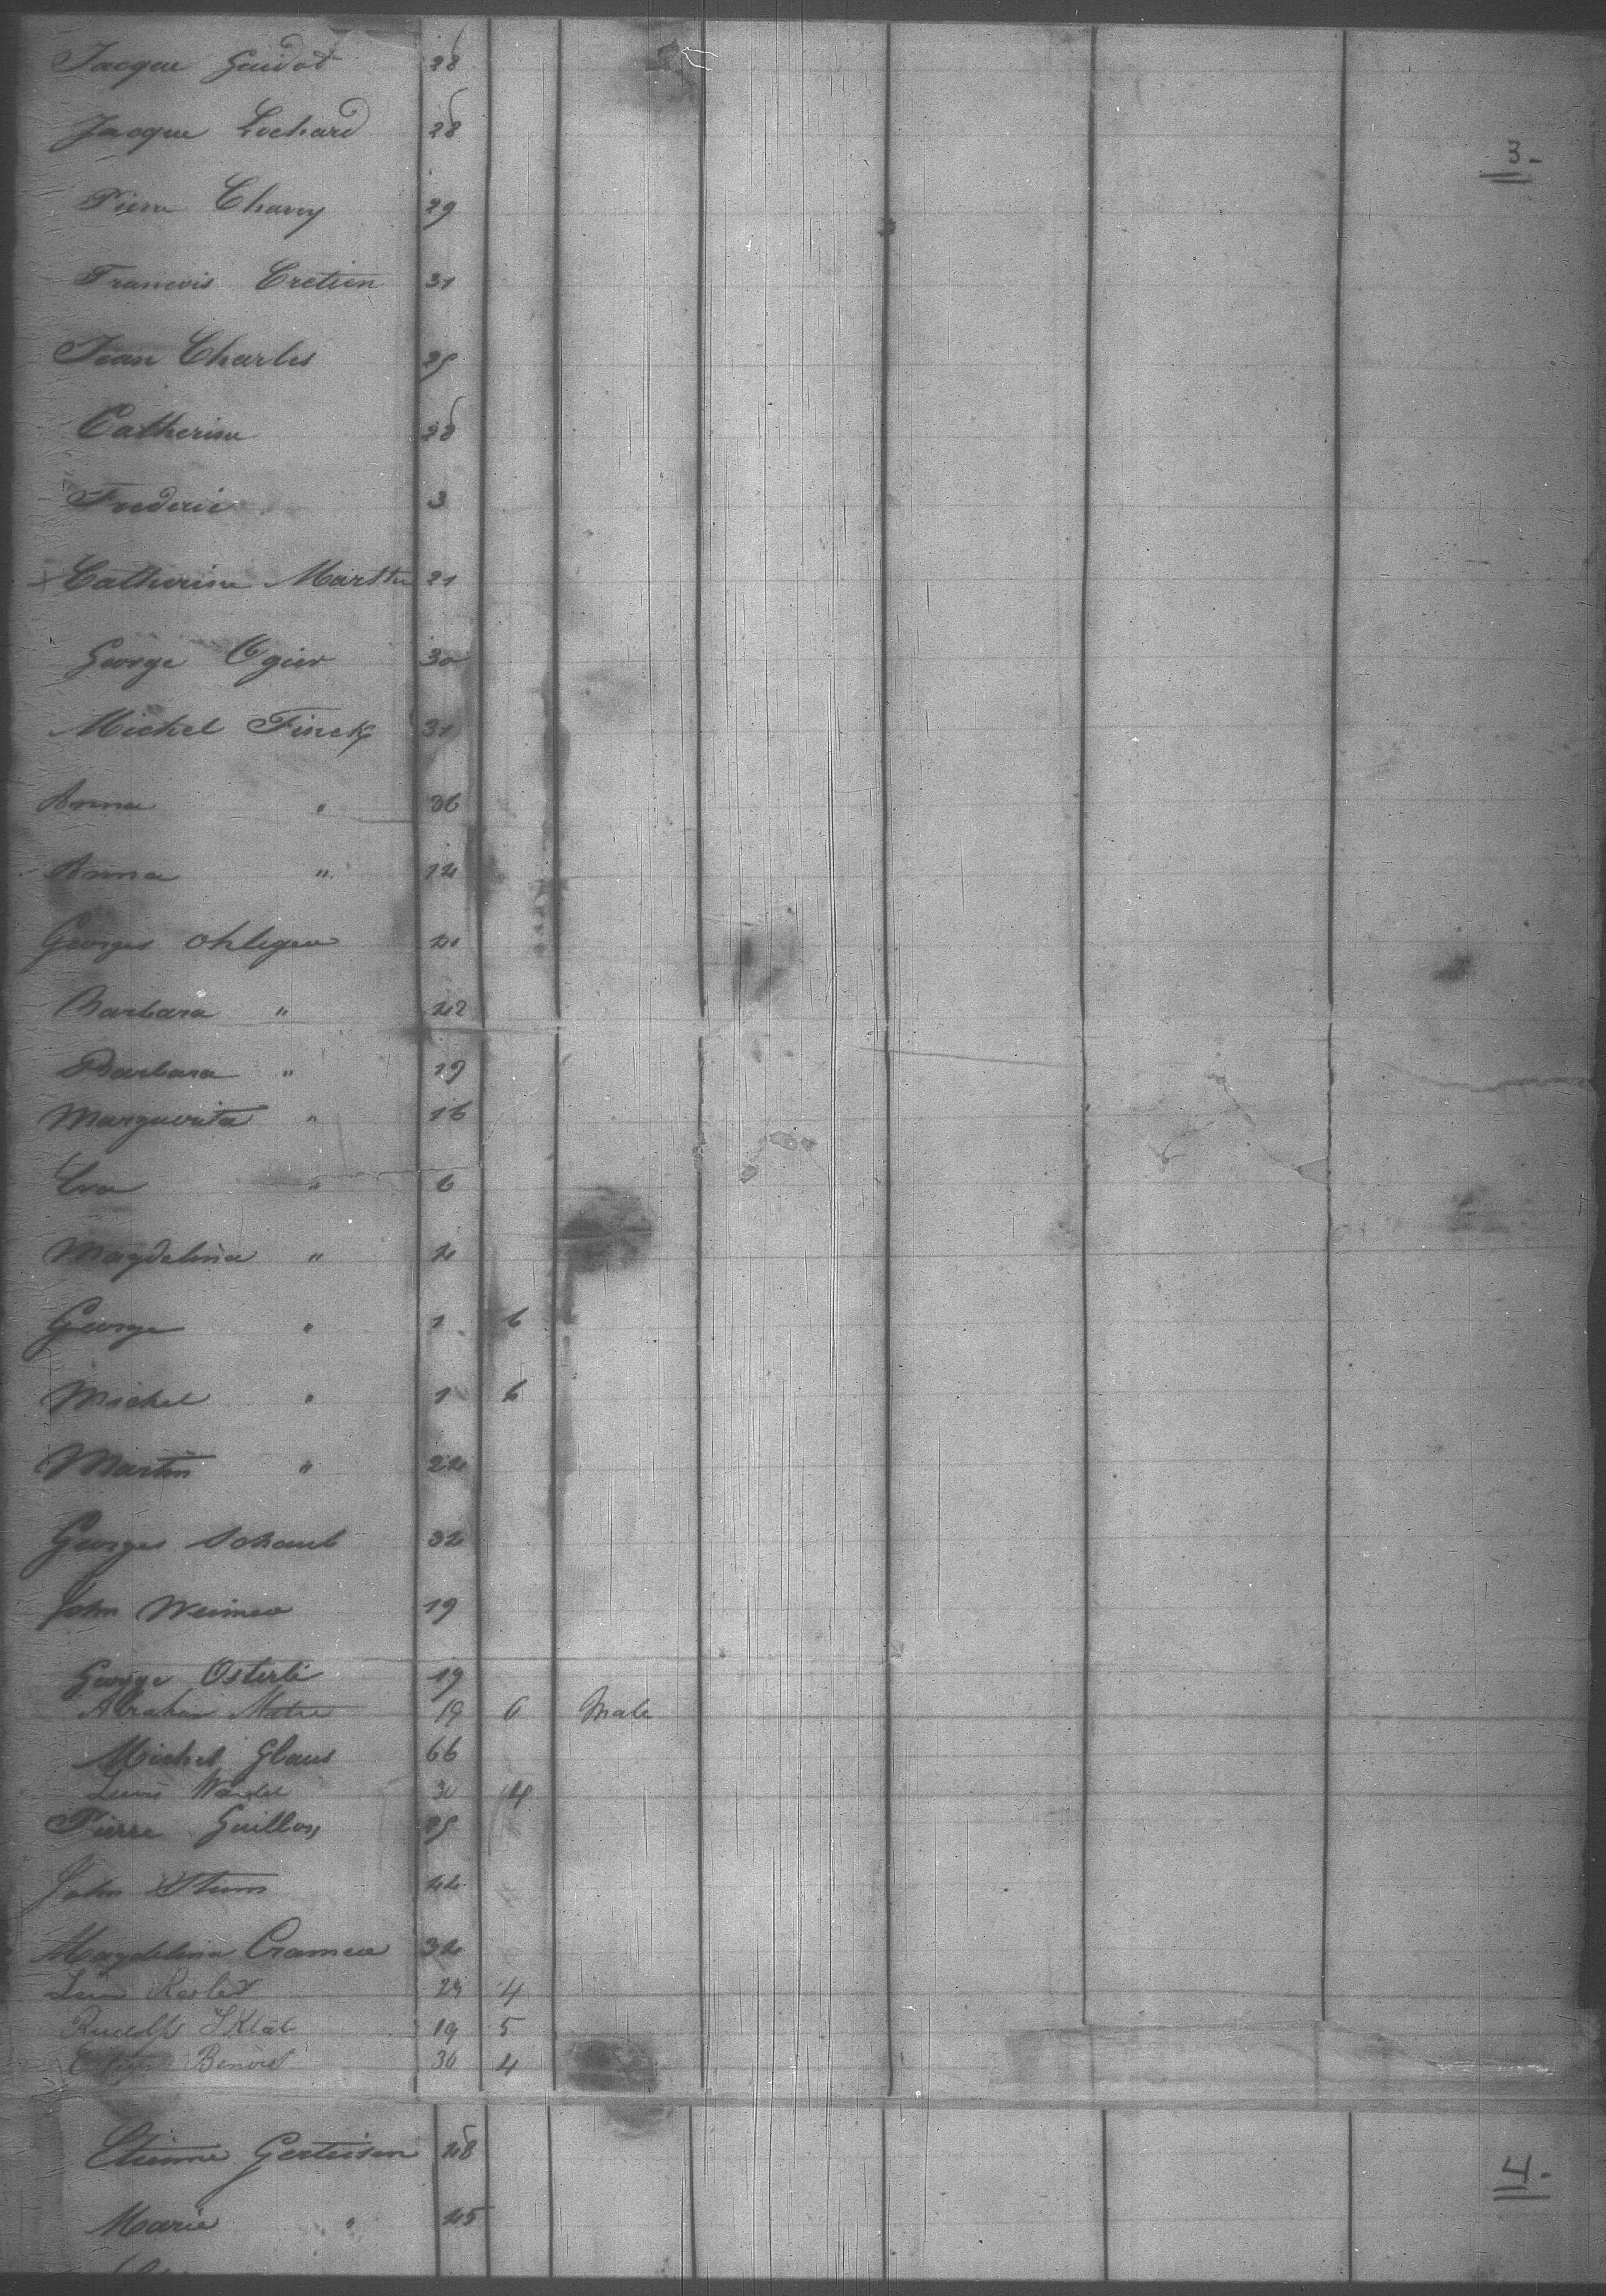 Jacque Guidot 28
Jacque Lochard 28
3.
Pierre Charry 29
Francois Cretien 31
Jean Charles 25
Catherine 28
Frederic 3
Catherine Marthe 21
George Ogier 30
Michel Finck 31
Anna " 36
Anna " 14
Georges Ohleger 41
Barbara " 42
Barbara " 19
Marguerita " 16
Eva " 6
Magdelina " 4
George " 1 6
Michel " 1 6
Martin " 24
Georges Schaub 34
John Weimer 19
George Osterle 19
Abraham 19 6 Male
Michel Glaus 66
Louis 30 4
Pierre Guillon 25
John Stum 44
Magdelina Cramer 34
29 4
Rudolf 19 5
Benoist 36 4
Etienne Gerteisen 48
4.
Marie " 45